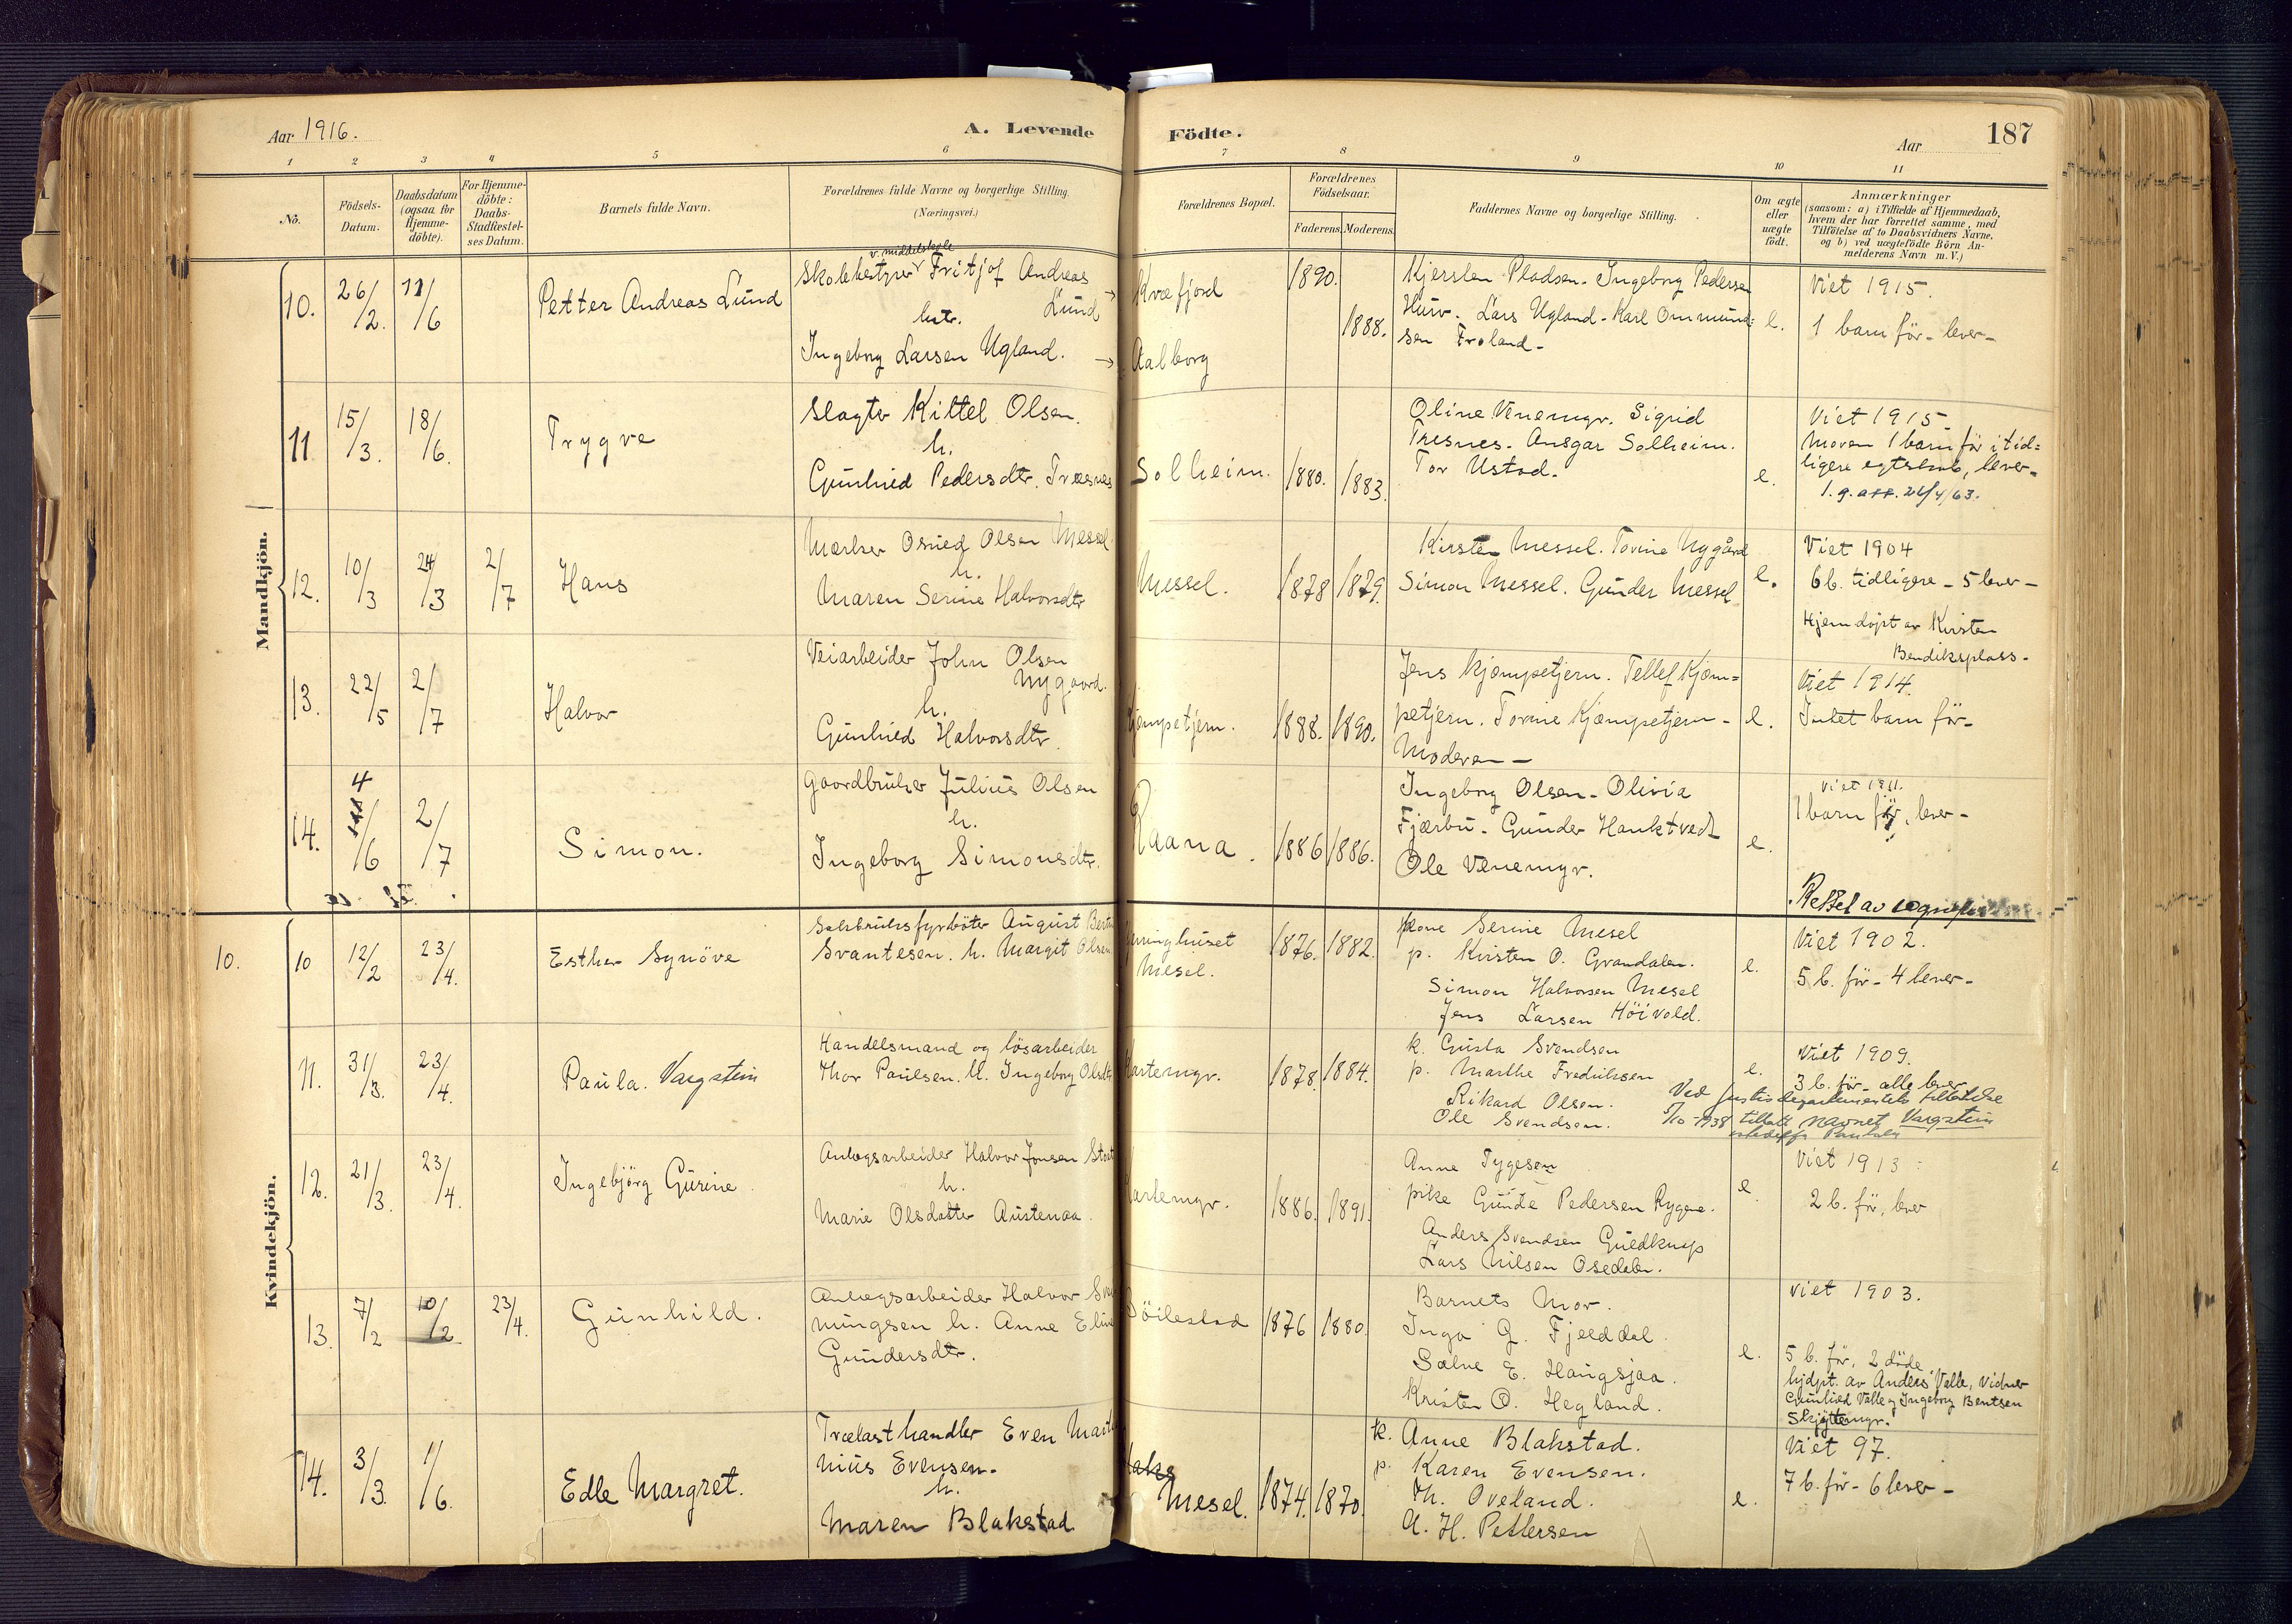 Aar 1916.
A. Levende Födte.
Aar
187
1 2 3 4 5 6 7 8 9 10 11
No.
Födsels-
Datum.
Daabsdatum
(ogsaa for
Hjemme-
döbte).
For Hjemme-
döbte:
Daabs-
Stadfæstel-
ses Datum.
Barnets fulde Navn.
Forældrenes fulde Navne og borgerlige Stilling.
(Næringsvei.)
Forældrenes Bopæl.
Forældrenes
Födselsaar.
Faderens. Moderens.
Faddernes Navne og borgerlige Stilling.
Om ægte
eller
uægte
födt.
Anmærkninger
(saasom: a) i Tilfælde af Hjemmedaab,
hvem der har forrettet samme, med
Tilföielse af to Daabsvidners Navne,
og b) ved uægtefödte Börn An-
melderens Navn m. V.)
Mandkjön.
10.
26/2.
11/6
Petter Andreas Lund
v. middelskole
Skolebestyrer Fritjof Andreas
Lund
hstr.
Ingeborg Larsen Ugland.
Kvæfjord
Aalborg
1890.
1888.
Kjersten Pladsen. Ingeborg Pedersen
Huiv. Lars Ugland. Karl Ommund=
sen Froland-
e.
Viet 1915.
1 barn för- lever-
11.
15/3.
18/6.
Trygve
Slagter Kittel Olsen.
h.
Gunhild Pedersdtr. Træsnes
Solheim.
1880.
1883.
Oline Venemyr. Sigrid
Tresnes. Ansgar Solheim.
Tor Ustad.
e.
Viet 1915
Moren 1 barn för i tid=
ligere egteskab, lever-
l. g. att. 26/4/63.
12.
10/3
24/3
2/7
Hans
Mærker Osuld Olsen Messel
h.
Maren Serine Halvorsdtr
Messel.
1878
1879.
Kirsten Messel. Torine Nygård
Simon Messel. Gunder Messel
e.
Viet 1904
6 b. tidligere - 5 lever-
Hjemdøpt av Kirsten
Bendiksplass.
13.
22/5
2/7
Halvor
Veiarbeider John Olsen
Nygaard.
h.
Gunhild Halvorsdtr.
Kjempetjern.
1888.
1890.
Jens Kjempetjern. Tellef Kjem=
petjern. Torine Kjempetjern-
Moderen-
e.
Viet 1914.
Intet barn för-
14.
4
/6
2/7
Simon.
Gaardbruker Julius Olsen
h.
Ingeborg Simonsdtr.
Raana.
1886
1886.
Ingeborg Olsen- Olivia
Fjærbu- Gunder Hauktvedt
Ole Venemyr.
e.
Viet 1911.
1 barn för, lever-
Rettet av
Kvindekjön.
10.
10
12/2
23/4.
Esther Synöve
Selsbruksfyrböter August
Svantesen. h. Margit Olsen
Messel.
1876.
1882.
kone Serine Mesel
p. Kirsten O. Grandalen.
Simon Halvorsen Mesel
Jens Larsen Höivold.
e.
Viet 1902.
5 b. för- 4 lever-
11.
31/3.
23/4.
Paula. Vargstein
Handelsmand og lösarbeider
Thor Paulsen. h. Ingeborg Olsdtr
Kartemyr.
1878.
1884.
k. Gusta Svendsen
p. Marthe Fredriksen
Rikard Olsen.
Ole Svendsen.
e.
Viet 1909.
3 b. för- alle lever
Ved justisdepartementets tillatelse
5/10 -1938 tillatt navnet Vargstein
istedenfor Paulsen
12.
21/3.
23/4.
Ingebjörg Gurine.
Anlægsarbeider Halvor Jonsen
h.
Marie Olsdatter Austenaa.
Kartemyr.
1886.
1891.
Anne Tygesen
pike Gunde Pedersen Rygene.
Anders Svendsen Guldknap
Lars Nilsen Osedalen.
e.
Viet 1913
2 b. för, lever
13.
7/2
10/2
23/4.
Gunhild.
Anlægsarbeider Halvor
mingsen h. Anne Eline
Gundersdtr.
Böilestad
1876
1880
Barnets Mor.
Inga G. Fjelddal.
Salve E. Haugsjaa.
Kristen O. Hegland.
e.
Viet 1903.
5 b. för, 2 döde
hjdpt. av Anders Valle, Vidner
Gunhild Valle og Ingeborg Bentsen
Skjyttemyr.
14.
3/3.
1/6.
Edle Margret.
Trælasthandler Even
nius Evensen.
h.
Maren Blakstad
Mesel.
1874.
1870.
k. Anne Blakstad.
p. Karen Evensen.
Th. Oveland.
A. H. Pettersen
e.
Viet 97.
7 b. för- 6 lever-